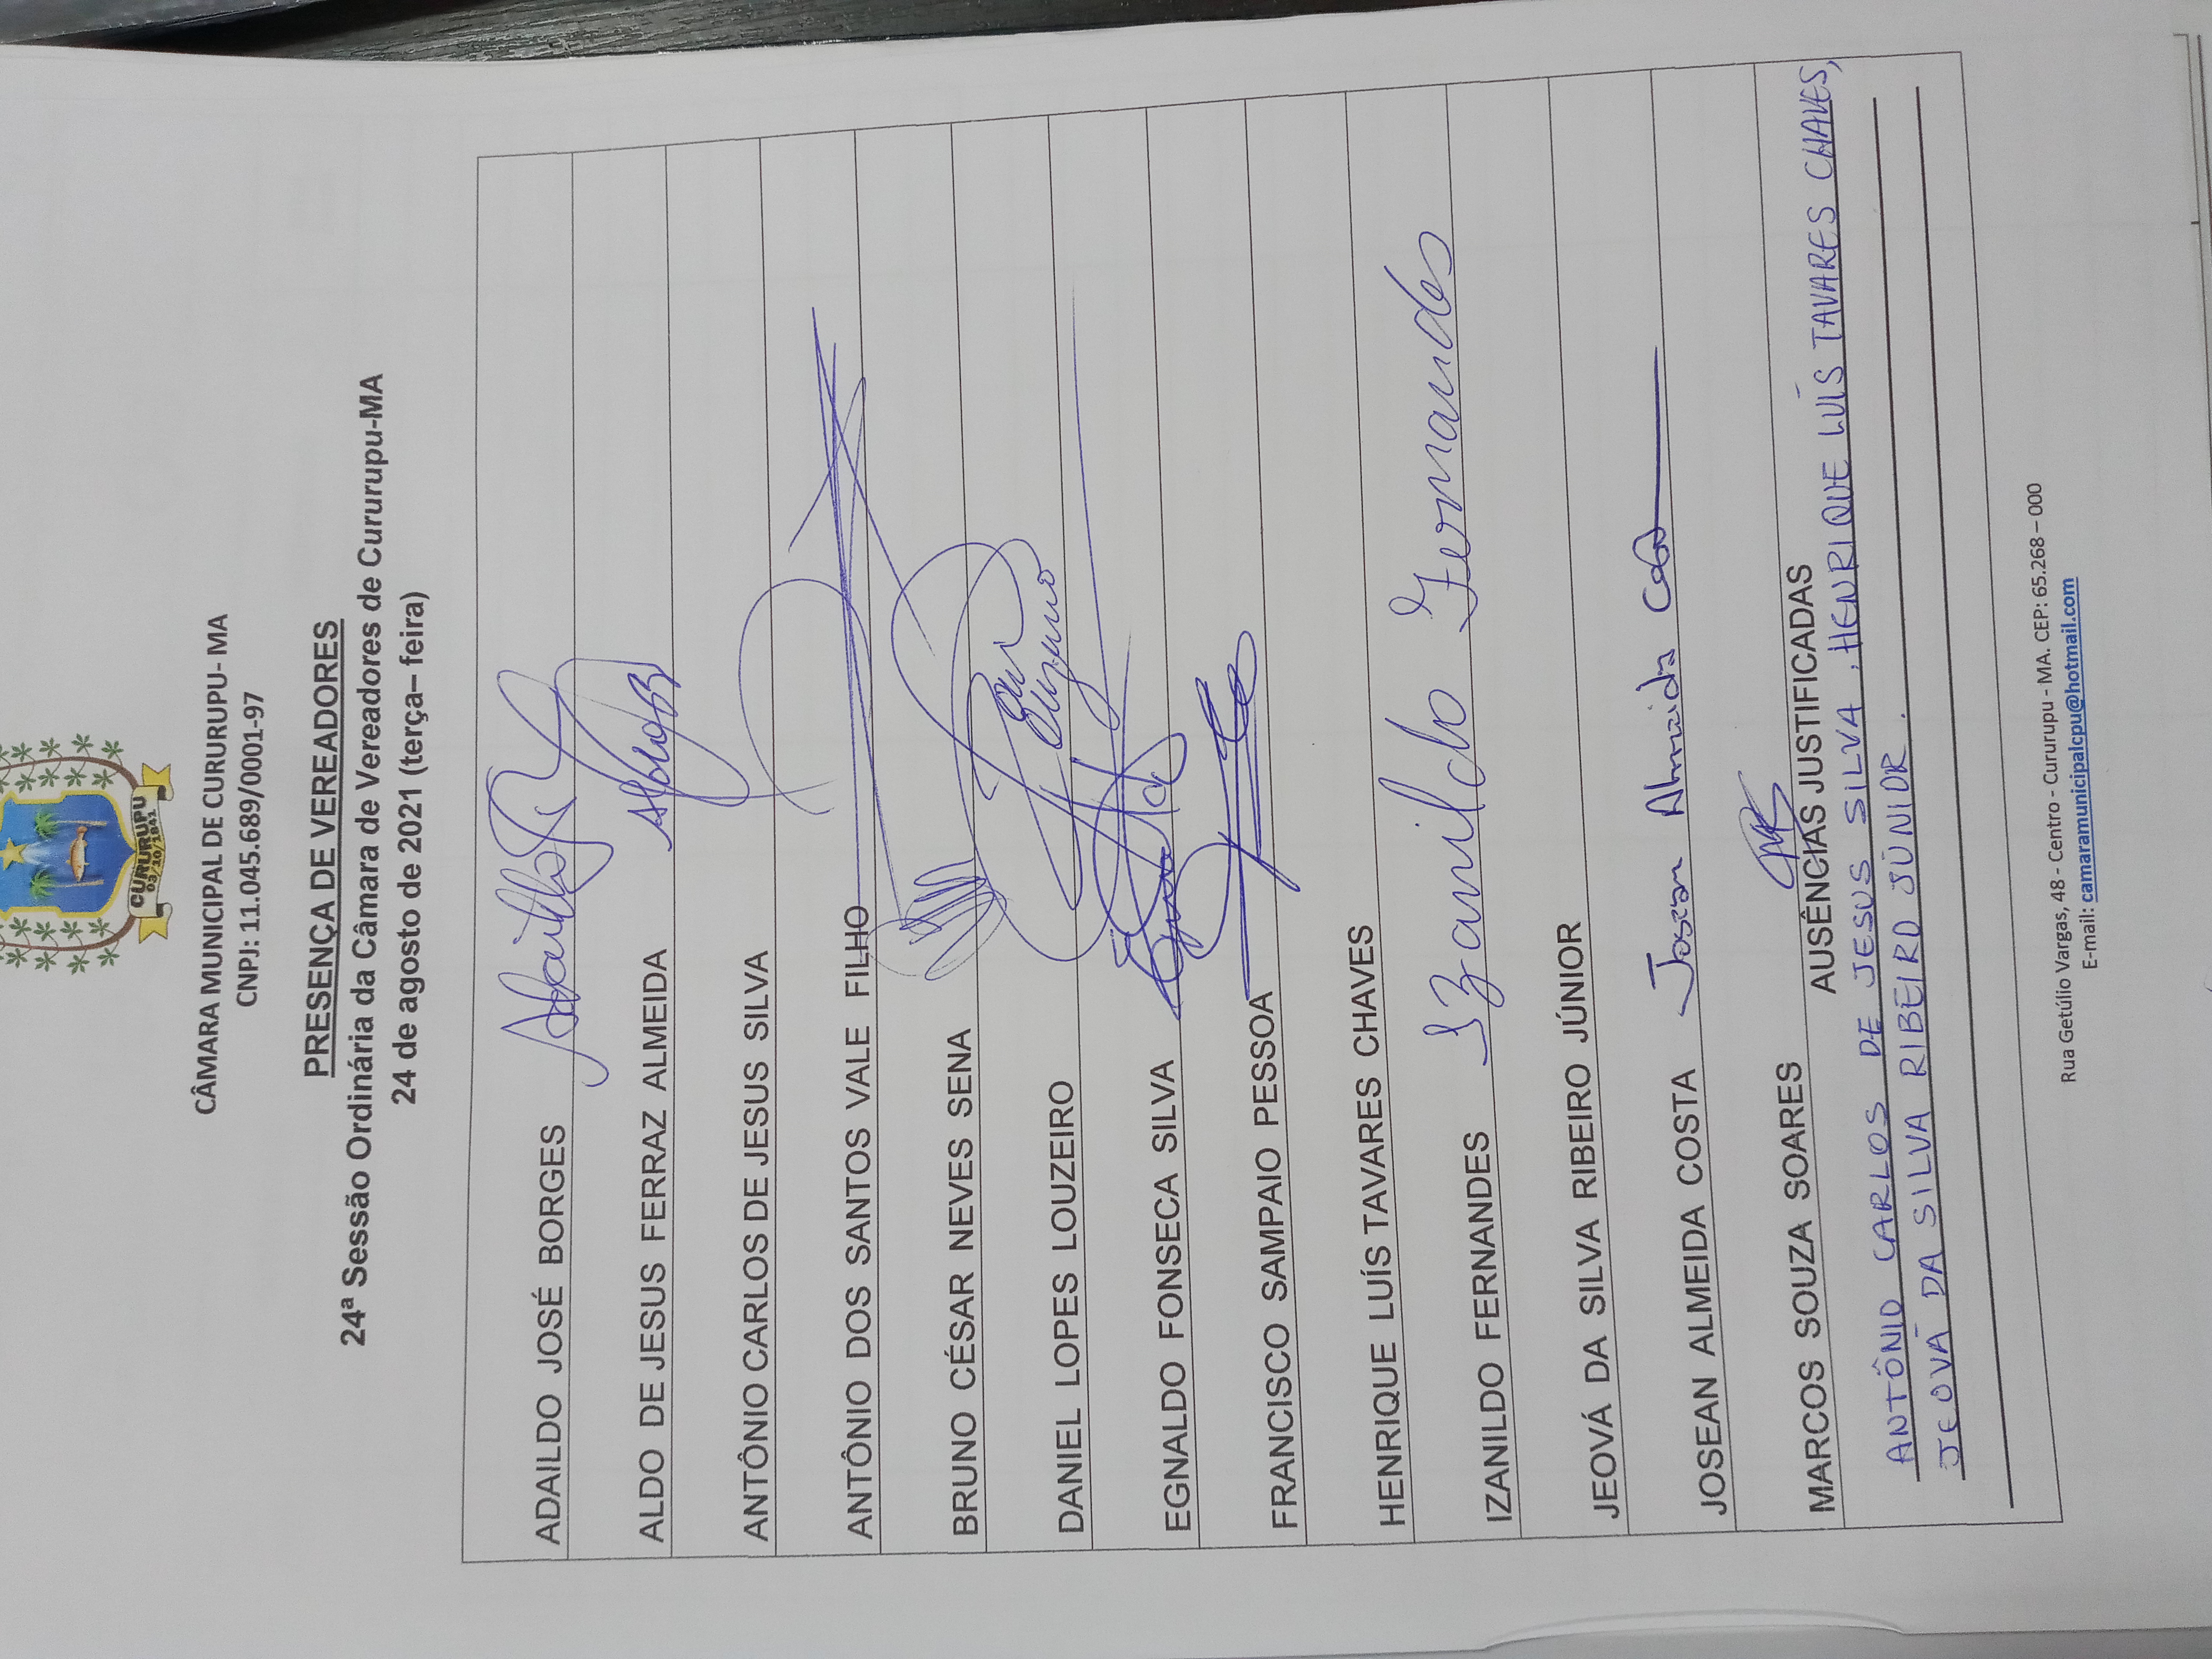 CURURUPU
03/10/1841
CÂMARA MUNICIPAL DE CURURUPU- MA
CNPJ: 11.045.689/0001-97
PRESENÇA DE VEREADORES
24ª Sessão Ordinária da Câmara de Vereadores de Cururupu-MA
24 de agosto de 2021 (terça– feira)
ADAILDO JOSÉ BORGES
ALDO DE JESUS FERRAZ ALMEIDA
ANTÔNIO CARLOS DE JESUS SILVA
ANTÔNIO DOS SANTOS VALE FILHO
BRUNO CÉSAR NEVES SENA
DANIEL LOPES LOUZEIRO
EGNALDO FONSECA SILVA
FRANCISCO SAMPAIO PESSOA
HENRIQUE LUÍS TAVARES CHAVES
IZANILDO FERNANDES Izanildo Fernandes
JEOVÁ DA SILVA RIBEIRO JÚNIOR
JOSEAN ALMEIDA COSTA Josean Almeida
MARCOS SOUZA SOARES
AUSÊNCIAS JUSTIFICADAS
ANTÔNIO CARLOS DE JESUS SILVA, HENRIQUE LUÍS TAVARES CHAVES,
JEOVÁ DA SILVA RIBEIRO JÚNIOR.
Rua Getúlio Vargas, 48 - Centro - Cururupu - MA. CEP: 65.268 – 000
E-mail: camaramunicipalcpu@hotmail.com